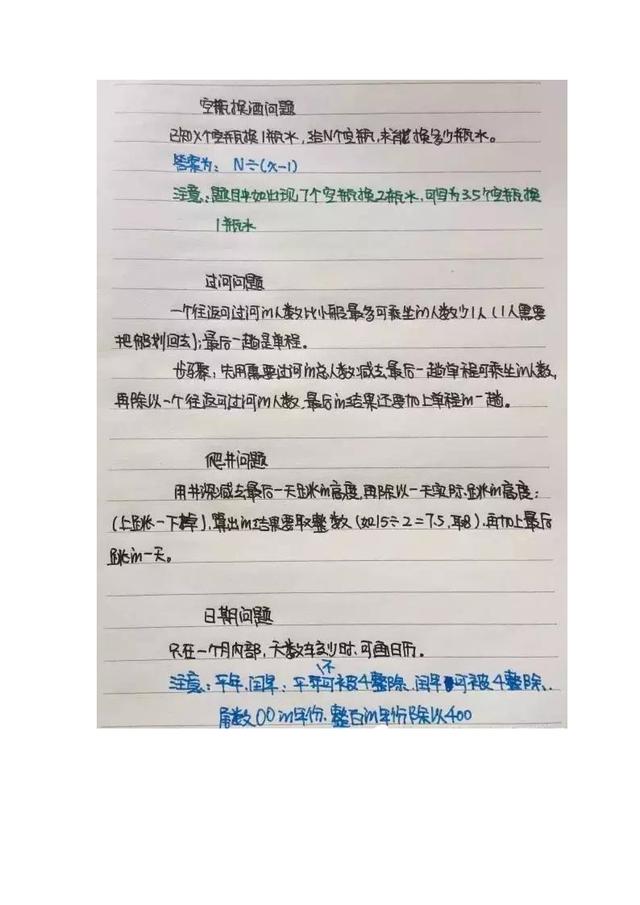 空瓶换酒问题
已知X个空瓶换1瓶水,给N个空瓶,求能换多少瓶水。
答案为: N÷(x-1)
注意:题目中如出现7个空瓶换2瓶水,可写为3.5个空瓶换
1瓶水
过河问题
一个往返可过河的人数比小船最多可乘坐的人数少1人(1人需要
把船划回去);最后一趟是单程。
步骤:先用需要过河的总人数减去最后一趟单程可乘坐的人数,
再除以一个往返可过河的人数,最后的结果还要加上单程的一趟。
爬井问题
用井深减去最后一天跳的高度,再除以一天实际跳的高度:
(上跳-下掉),算出的结果要取整数(如15÷2=7.5,取8),再加上最后
跳的一天。
日期问题
只在一个月内部,天数较少时,可画日历。
不
注意:平年,闰年:平年可被4整除,闰年可被4整除、
尾数00的年份、整百的年份除以400